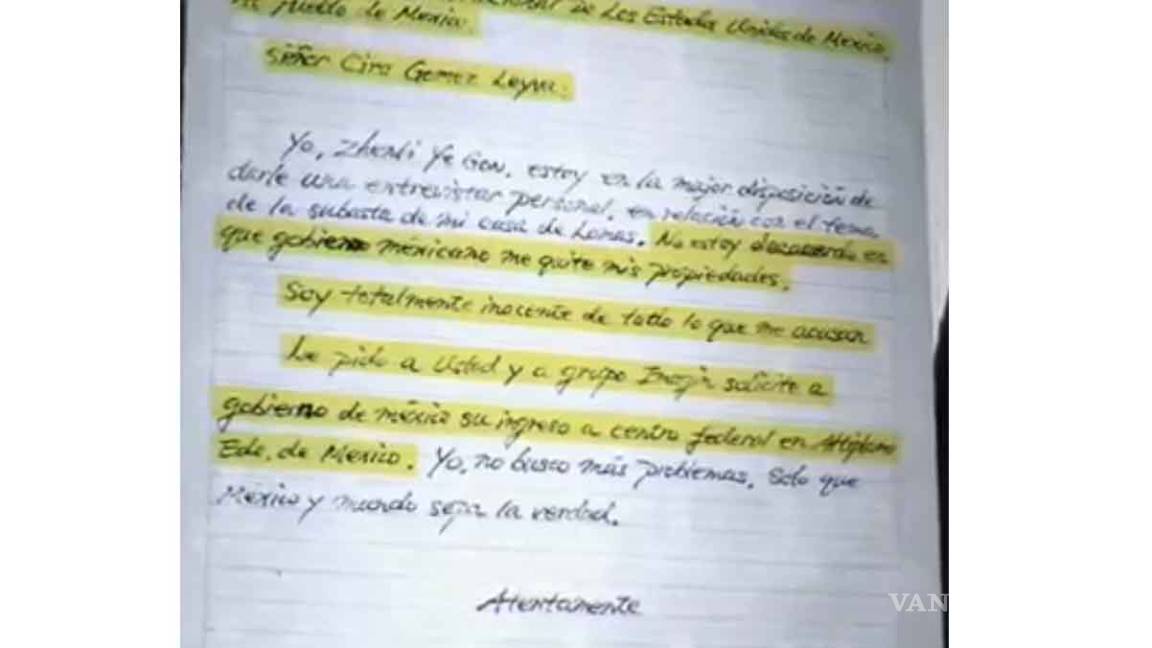 de Los Estados Unidos de Mexico,
Pueblo de Mexico.
Señor Ciro Gomez Leyva.
Yo, Zhenli Ye Gon, estoy en la mejor disposición de
darle una entrevistar personal, en relación con el tema
de la subasta de mi casa de Lomas. No estoy deacuerdo en
que gobierno méxicano me quite mis propiedades.
Soy totalmente inocente de todo lo que me acusan
Le pido a Usted y a grupo Imagin solicite a
gobierno de méxico su ingreso a centro federal en Altiplano
Edo. de Mexico. Yo, no busco más problemas, solo que
México y mundo sepa la verdad.
Atentamente
VAN